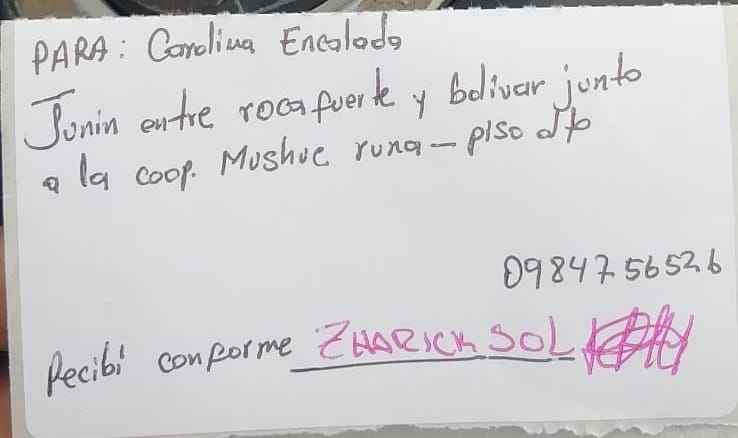 PARA: Carolina Encalada
Junin entre rocafuerte y bolivar junto
a la coop. Mushuc runa - piso
0984756526
Recibí conforme ZHARICK SOL